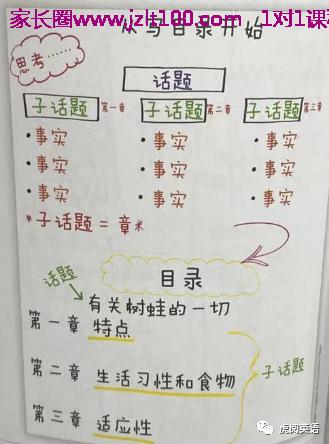 家长圈www.jzlt100.com 1对1课程
从写目录开始
思考……
话题
子话题 第一章 子话题 第二章 子话题 第三章
• 事实 • 事实 • 事实
• 事实 • 事实 • 事实
• 事实 • 事实 • 事实
*子话题=章*
目录
话题
有关树蛙的一切
第一章 特点
第二章 生活习性和食物
子话题
第三章 适应性
虎阅英语